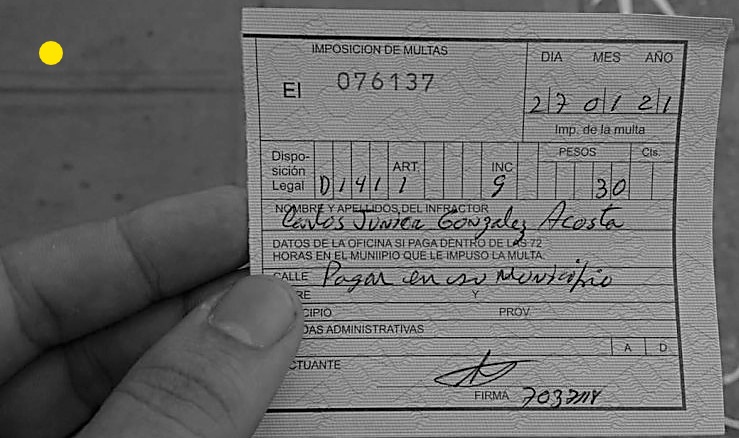 IMPOSICION DE MULTAS
DIA MES AÑO
EI 076137
27 01 21
Imp. de la multa
Dispo-
sición
Legal D 141 ART. 1 INC G PESOS 30 Cts.
NOMBRE Y APELLIDOS DEL INFRACTOR
Carlos Junior Gonzalez Acosta
DATOS DE LA OFICINA SI PAGA DENTRO DE LAS 72
HORAS EN EL MUNIIPIO QUE LE IMPUSO LA MULTA.
CALLE Pagar en su Municipio
RE Y
CIPIO PROV.
DAS ADMINISTRATIVAS
A D
CTUANTE
FIRMA